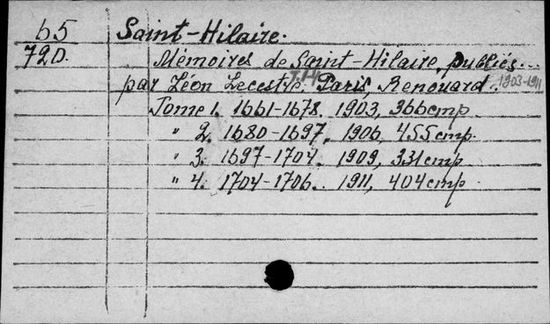 65 Saint-Hilaire.
720. Mémoires de Saint-Hilaire, publiés...
par Léon Lecestre. Т.1-4. Paris, Renouard. 1903-1911
Tome 1. 1661-1678. 1903, 366 стр.
" 2. 1680-1697. 1906, 455 стр.
" 3. 1697-1704. 1909, 331 стр.
" 4. 1704-1706. 1911, 404 стр.